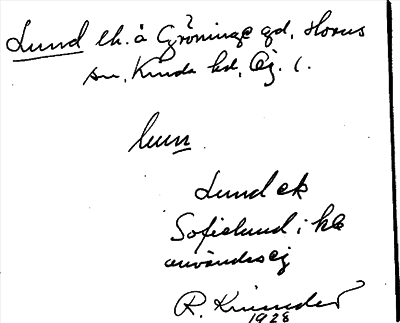 Lund ek. å Gröninge gd, Horns
sn, Kinda hd, Ög. l.
lunn
Lund ek
Sofielund i kb
användes ej
R.
1928